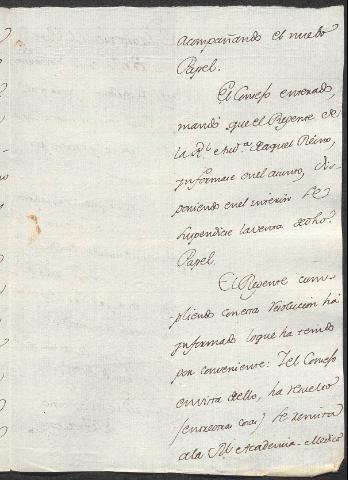 acompañando el nuebo
Papel.
El Consejo enterado,
mandó que el Regente de
la Rl. Auda. de aquel Reino,
informase en el asunto, dis-
poniendo en el interin se
suspendiese la venta de dho.
Papel.
El Regente cum-
pliendo con esta resolucion há
informado lo que ha tenido
por conveniente: Y el Consejo
en vista de ello, ha resuelto
(entre otras cosas) se remita
a la Rl. Academia Medico